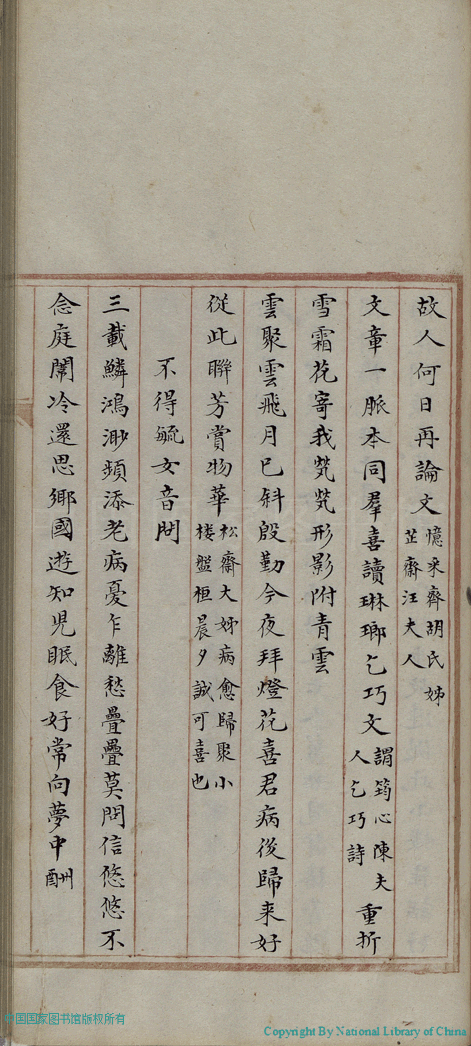 故人何日再論文憶采齋胡氏姊芷齋汪夫人
文章一脈本同羣喜讀琳瑯乞巧文謂筠心陳夫人乞巧詩重折
雪霜花寄我煢煢形影附青雲
雲聚雲飛月已斜殷勤今夜拜燈花喜君病後歸来好
從此聯芳賞物華松齋大姊病愈歸聚小楼盤桓晨夕誠可喜也
不得毓女音問
三載鱗鴻渺頻添老病憂乍離愁疊疊莫問信悠悠不
念庭闈冷還思鄉國遊知児眠食好常向夢中酬
中国国家图书馆版权所有
Copyright By National Library of China